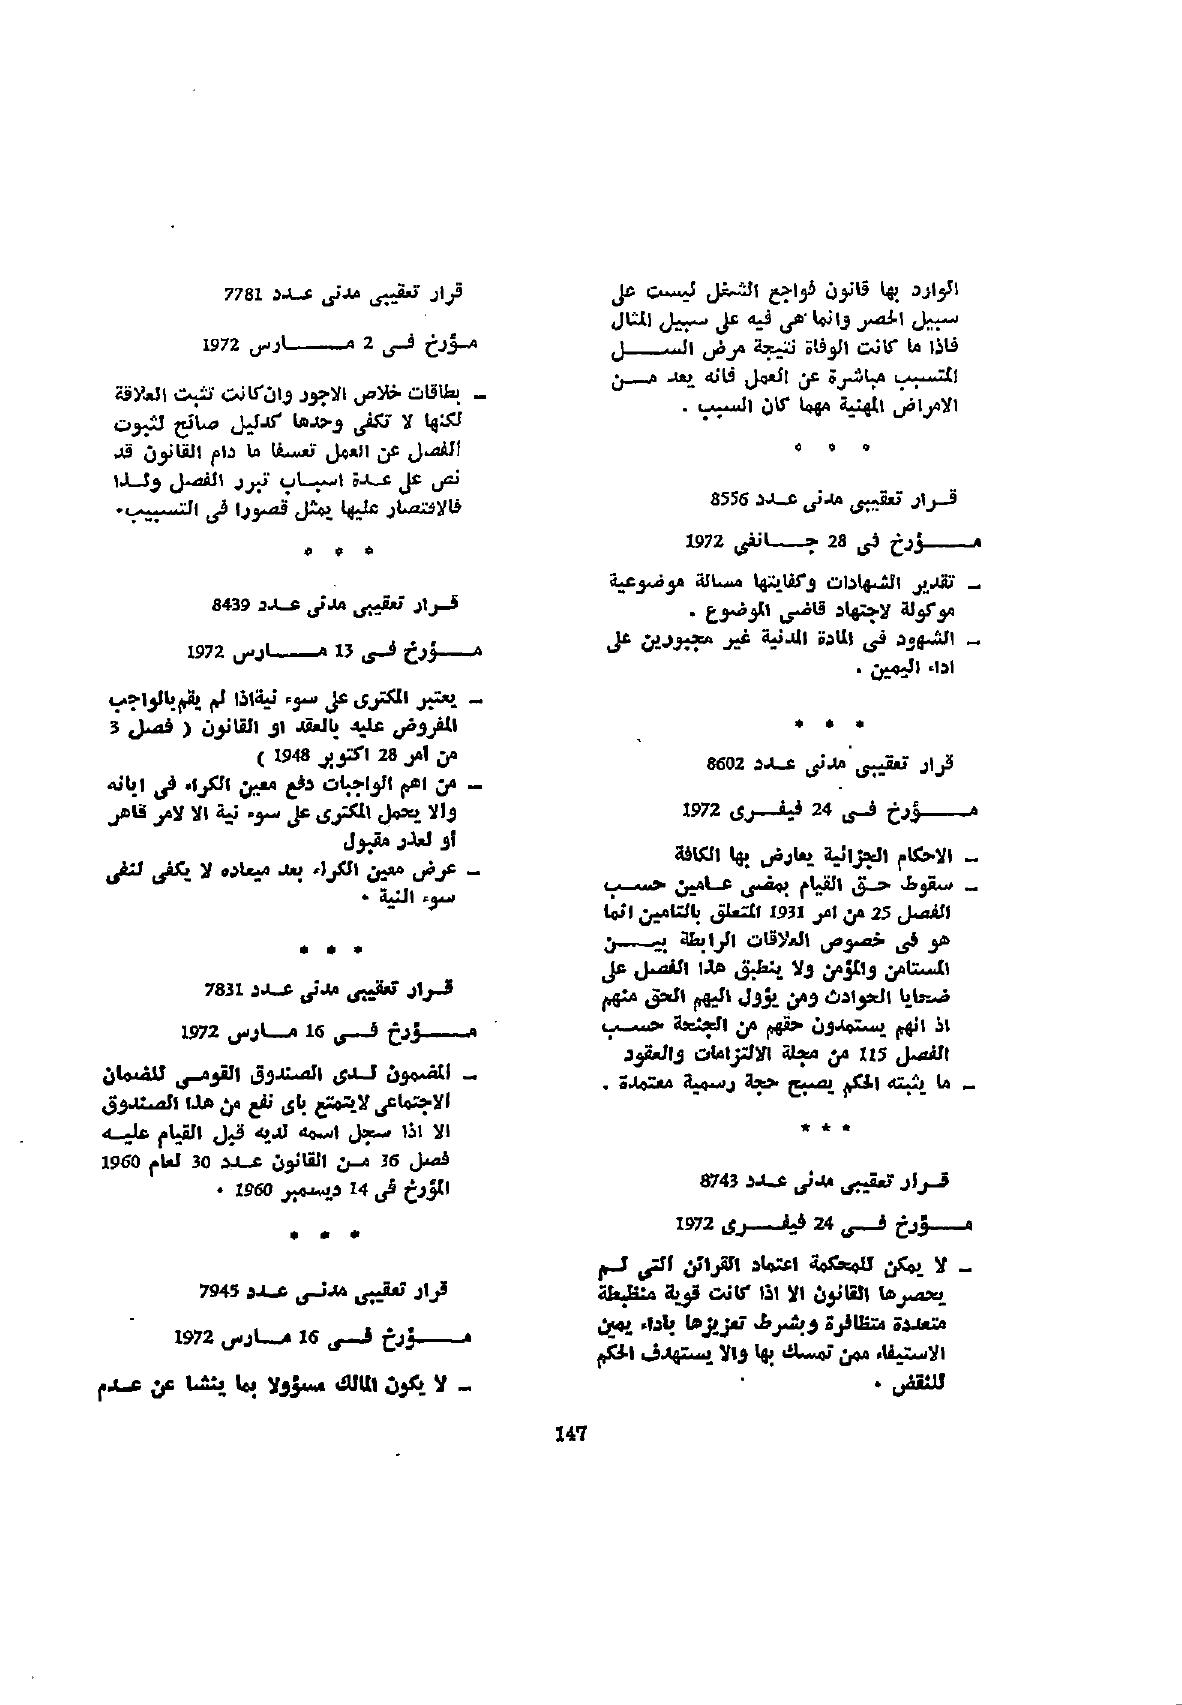 الوارد بها قانون فواجع الشغل ليست على
سبيل الحصر وانما هى فيه على سبيل المثال
فاذا ما كانت الوفاة نتيجة مرض الســـــل
المتسبب مباشرة عن العمل فانه يعد مـــن
الامراض المهنية مهما كان السبب .
* * *
قــرار تعقيبى مدنى عــدد 8556
مـــــؤرخ فى 28 جـــانفى 1972
ـ تقدير الشهادات وكفايتها مسالة موضوعية
موكولة لاجتهاد قاضى الموضوع .
ـ الشهود فى المادة المدنية غير مجبورين على
اداء اليمين .
* * *
قرار تعقيبى مدنى عــدد 8602
مـــــؤرخ فــى 24 فيفــرى 1972
ـ الاحكام الجزائية يعارض بها الكافة
ـ سقوط حــق القيام بمضى عــامين حســب
الفصل 25 من امر 1931 المتعلق بالتامين انما
هو فى خصوص العلاقات الرابطة بيـــن
المستامن والمؤمن ولا ينطبق هذا الفصل على
ضحايا الحوادث ومن يؤول اليهم الحق منهم
اذ انهم يستمدون حقهم من الجنحة حســب
الفصل 115 من مجلة الالتزامات والعقود
ـ ما يثبته الحكم يصبح حجة رسمية معتمدة .
* * *
قــرار تعقيبى مدنى عــدد 8743
مـــــؤرخ فــى 24 فيفــرى 1972
ـ لا يمكن للمحكمة اعتماد القرائن التى لــم
يحصرها القانون الا اذا كانت قوية منظبطة
متعددة متظافرة وبشرط تعزيزها باداء يمين
الاستيفاء ممن تمسك بها والا يستهدف الحكم
للنقض .
قرار تعقيبى مدنى عــدد 7781
مــؤرخ فــى 2 مـــــارس 1972
ـ بطاقات خلاص الاجور وان كانت تثبت العلاقة
لكنها لا تكفى وحدها كدليل صالح لثبوت
الفصل عن العمل تعسفا ما دام القانون قد
نص على عــدة اسبــاب تبرر الفصل ولــذا
فالاقتصار عليها يمثل قصورا فى التسبيب.
* * *
قــرار تعقيبى مدنى عــدد 8439
مـــــؤرخ فــى 13 مـــــارس 1972
ـ يعتبر المكترى على سوء نية اذا لم يقم بالواجب
المفروض عليه بالعقد او القانون ( فصل 3
من أمر 28 اكتوبر 1948 )
ـ من اهم الواجبات دفع معين الكراء فى ابانه
والا يحمل المكترى على سوء نية الا لامر قاهر
أو لعذر مقبول
ـ عرض معين الكراء بعد ميعاده لا يكفى لنفى
سوء النية .
* * *
قــرار تعقيبى مدنى عــدد 7831
مـــــؤرخ فــى 16 مــارس 1972
ـ المضمون لــدى الصندوق القومــى للضمان
الاجتماعى لا يتمتع باى نفع من هذا الصندوق
الا اذا سجل اسمه لديه قبل القيام عليــه
فصل 36 مــن القانون عــدد 30 لعام 1960
المؤرخ فى 14 ديسمبر 1960 .
* * *
قرار تعقيبى مدنــى عــدد 7945
مـــــؤرخ فــى 16 مــارس 1972
ـ لا يكون المالك مسؤولا بما ينشا عن عــدم
147